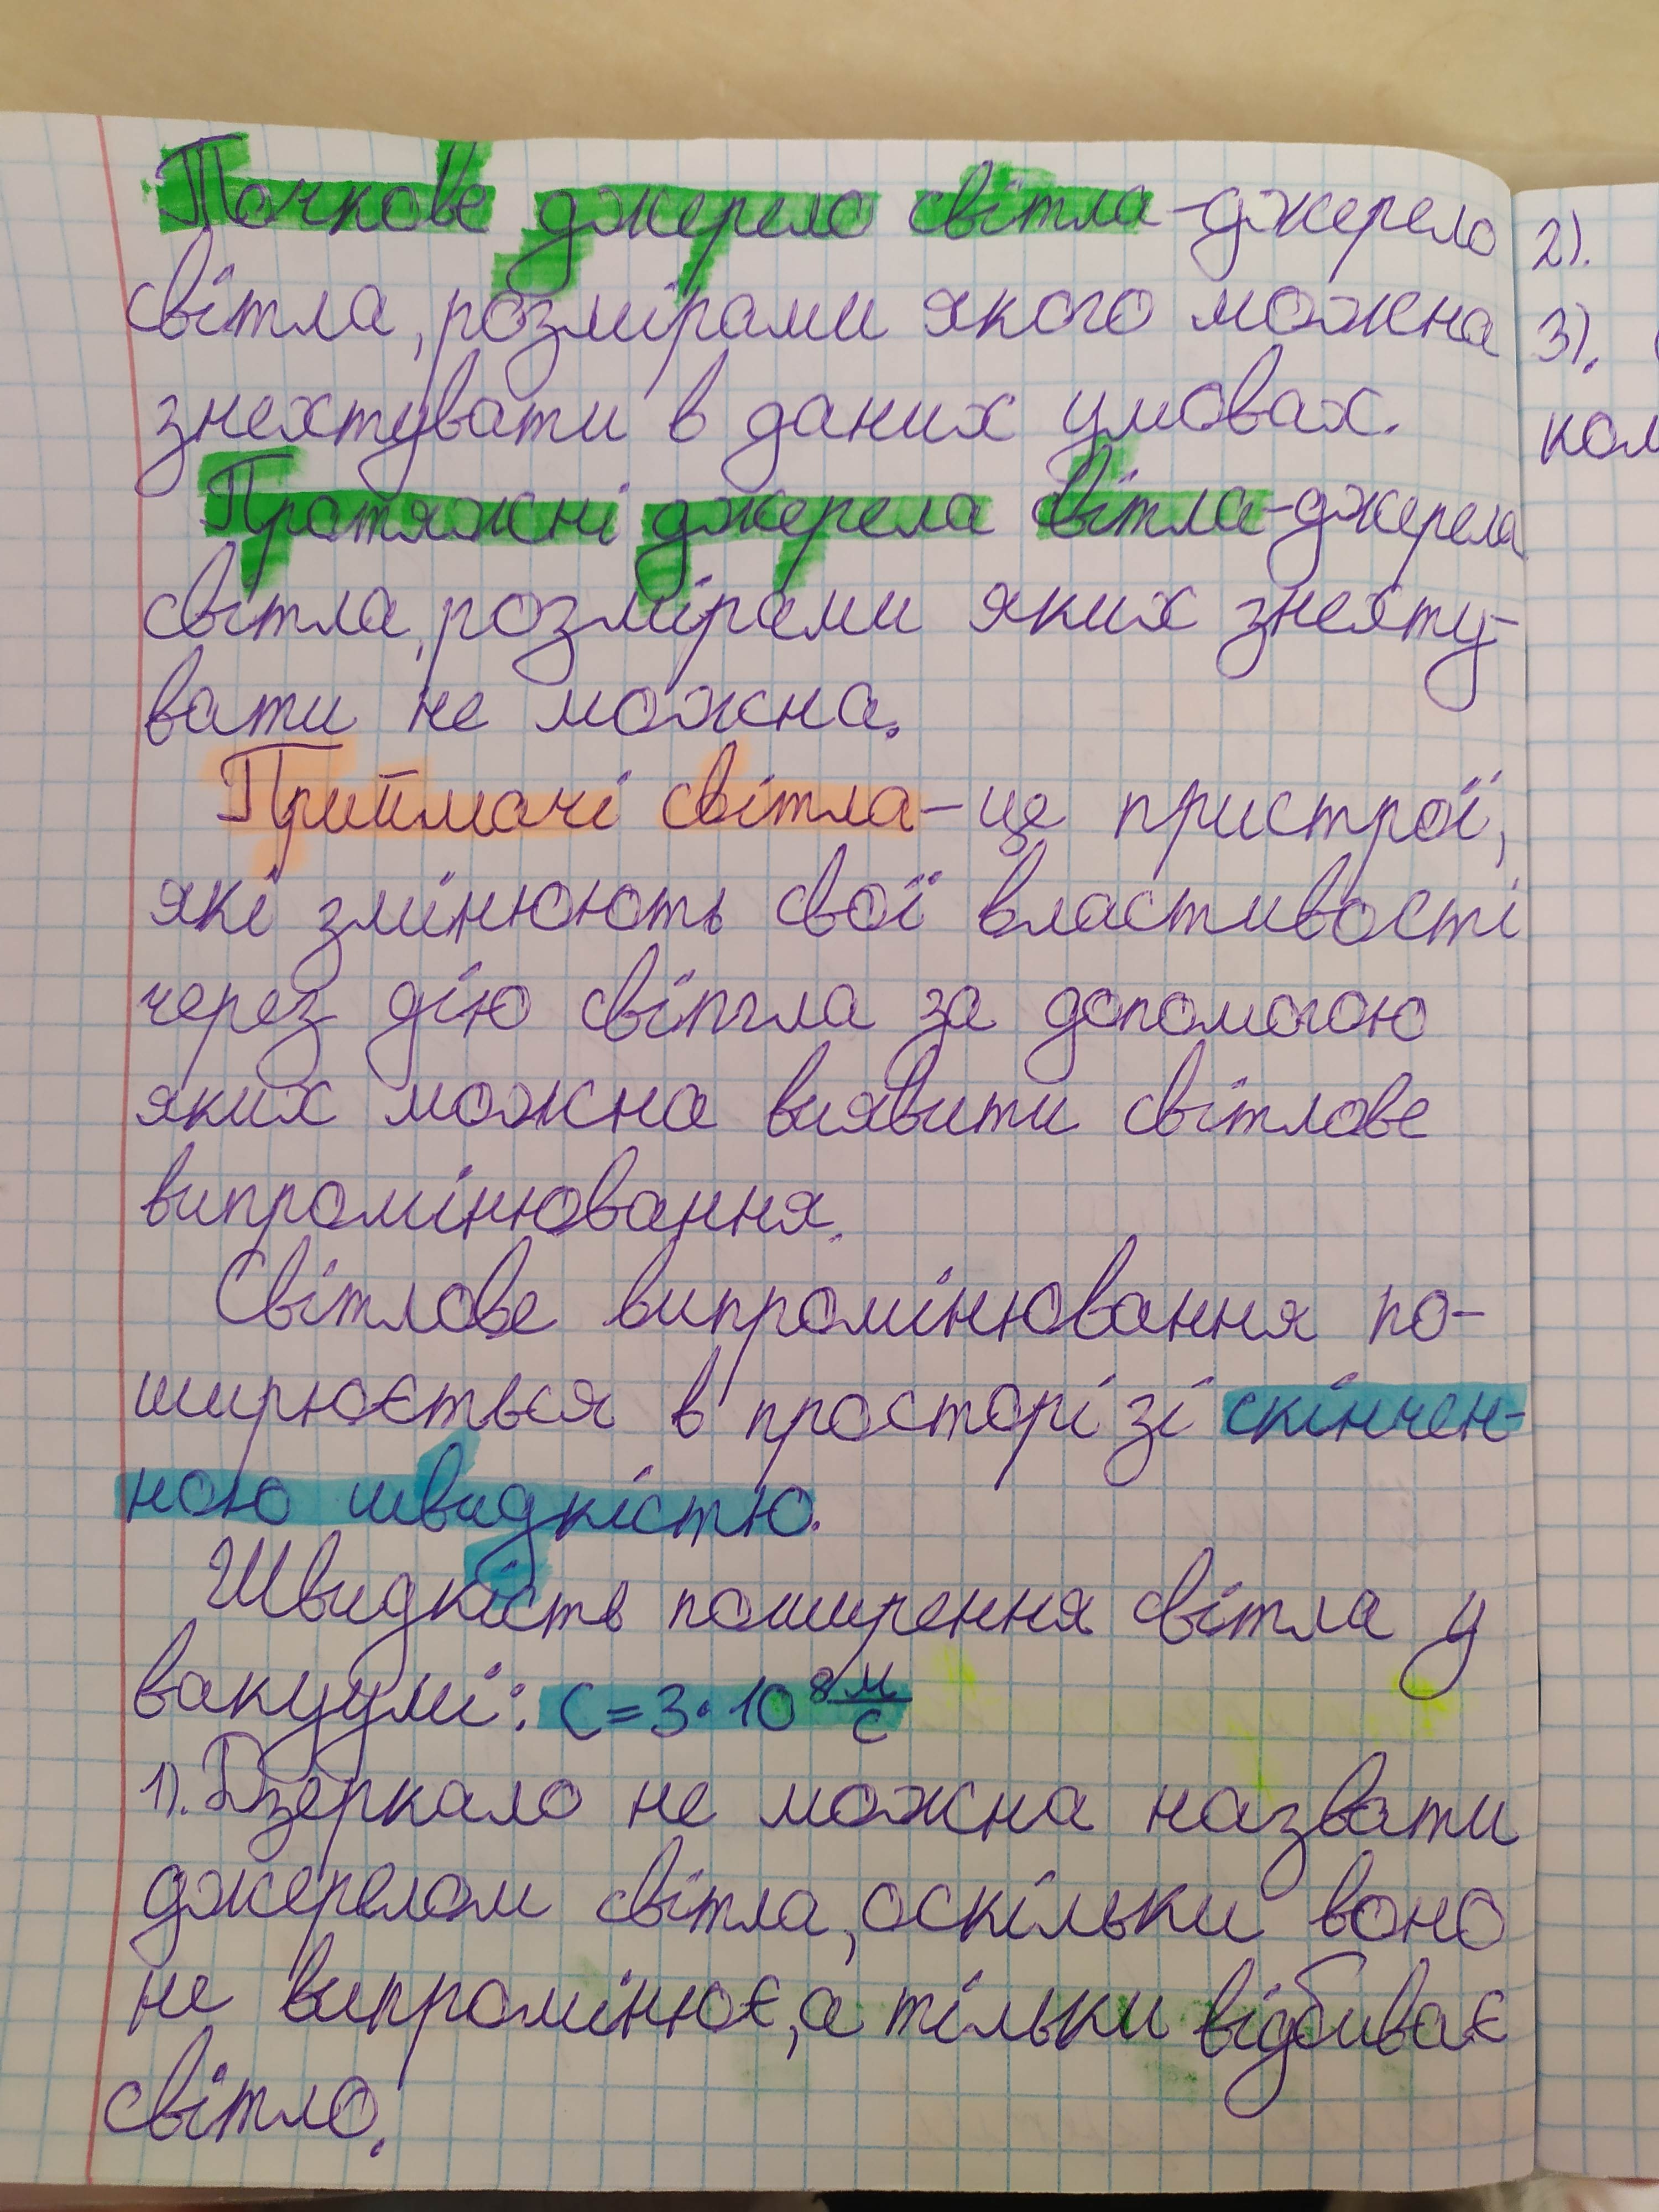 Точкове джерело світла-джерело
світла, розмірами якого можна
знехтувати в даних умовах.
Протяжні джерела світла-джерела
світла, розмірами яких знехту-
вати не можна.
Приймачі світла-це пристрої,
які змінюють свої властивості
через дію світла за допомогою
яких можна виявити світлове
випромінювання.
Світлове випромінювання по-
ширюється в просторі зі скінчен-
ною швидкістю.
Швидкість поширення світла у
вакуумі: c=3·10⁸ м/с
1). Дзеркало не можна назвати
джерелом світла, оскільки воно
не випромінює, а тільки відбиває
світло.
2).
3).